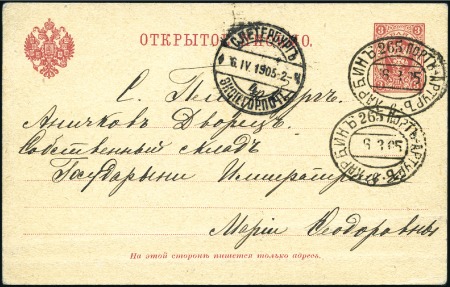 3
ОТКРЫТОЕ ПИСЬМО.
С.ПЕТЕРБУРГЪ
6.IV.1905
ХАРБИНЪ 265 ПОРТЪ-АРТУРЪ
6 3 05
ХАРБИНЪ 265 ПОРТЪ-АРТУРЪ
6 3 05
С. Петербургъ.
Аничковъ Дворецъ.
Собственный складъ
Государыни Императрицы
Маріи Ѳеодоровны
На этой сторонѣ пишется только адресъ.